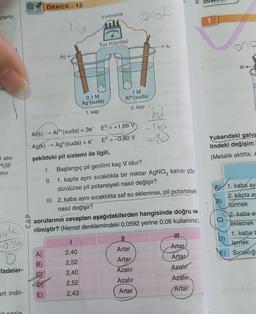 ÖRNEK - 12
Voltmetre
Tuz Köprüsü
Ag
Al
0,1 M
Ag⁺(suda)
1 M
Al³⁺(suda)
1. kap
2. kap
Al(k) → Al³⁺(suda) + 3e⁻ E° = +1,66 V
Ag(k) → Ag⁺(suda) + e⁻ E° = –0,80 V
şekildeki pil sistemi ile ilgili,
I. Başlangıç pil gerilimi kaç V olur?
II. 1. kapta aynı sıcaklıkta bir miktar AgNO₃ katısı çözdürülürse pil potansiyeli nasıl değişir?
III. 2. kaba aynı sıcaklıkta saf su eklenirse, pil potansiyeli nasıl değişir?
sorularının cevapları aşağıdakilerden hangisinde doğru verilmiştir? (Nernst denklemindeki 0,0592 yerine 0,06 kullanınız.)
I II III
A) 2,40 Artar Artar
B) 2,52 Artar Artar
C) 2,40 Azalır Azalır
D) 2,52 Azalır Azalır
E) 2,43 Artar Artar
CAP
fadeler-
art indir-
1
Al
Yukarıdaki galva
lindeki değişim
(Metalik aktiflik: A
A) 1. kaba ay
B) 2. kapta ay
türmek
C) 2. kaba a
eklemek
D) 1. kaba s
lemek
E) Sıcaklığı